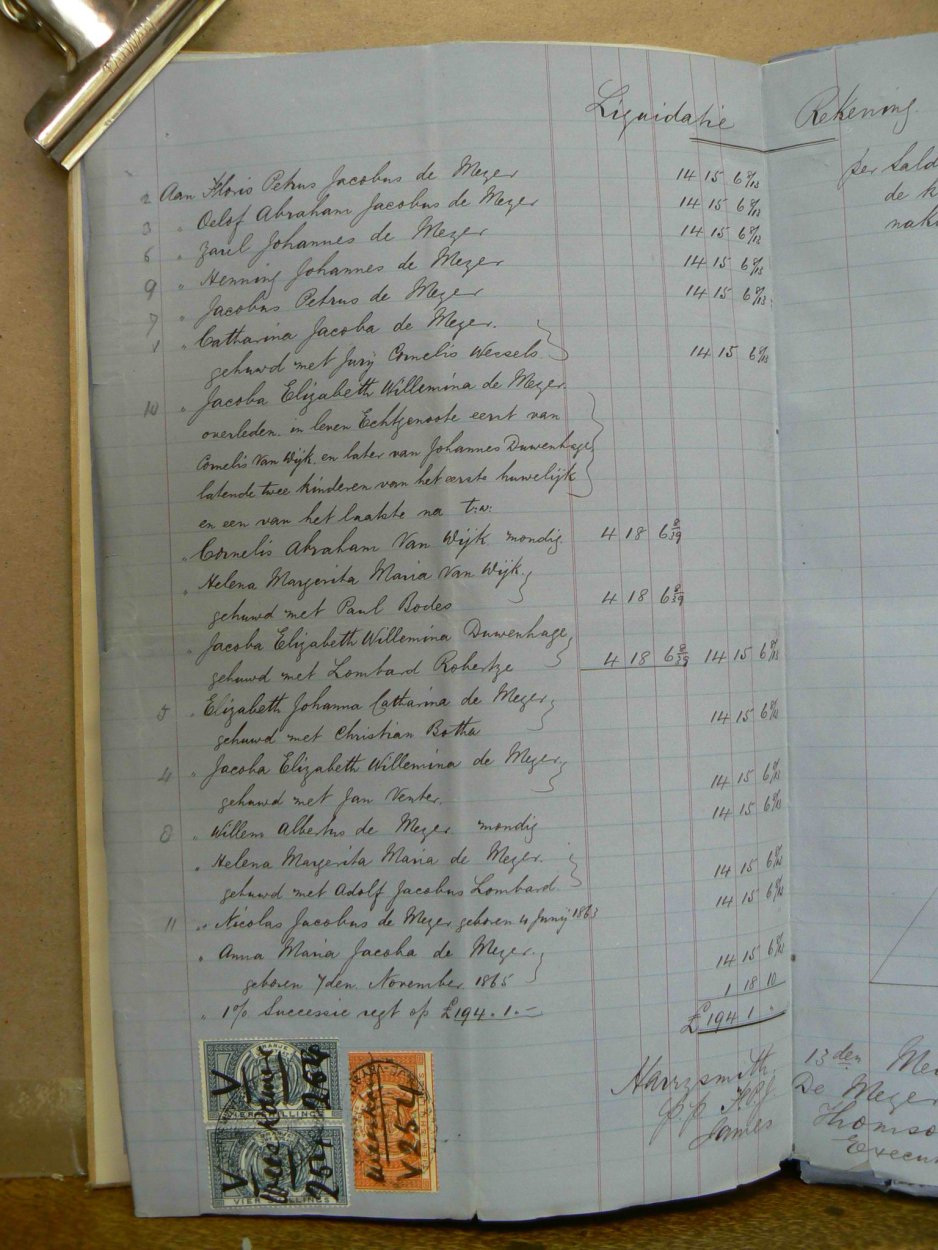 Liquidatie Rekening
2 Aan Floris Petrus Jacobus de Meyer 14 15 6 9/13
3 " Oelof Abraham Jacobus de Meyer 14 15 6 9/13
6 " Zarel Johannes de Meyer 14 15 6 9/13
9 " Henning Johannes de Meyer 14 15 6 9/13
7 " Jacobus Petrus de Meyer 14 15 6 9/13
1 " Catharina Jacoba de Meyer.
gehuwd met Jurij Cornelis Wessels. 14 15 6 9/13
10 " Jacoba Elizabeth Willemina de Meyer.
overleden. in leven Echtgenoote eerst van
Cornelis Van Wijk. en later van Johannes Duwenhage
latende twee kinderen van het eerste huwelijk
en een van het laatste na t:w:
" Cornelis Abraham Van Wijk mondig 4 18 6
" Helena Margerita Maria Van Wijk.
gehuwd met Paul Bodes 4 18 6
" Jacoba Elizabeth Willemina Duwenhage
gehuwd met Lombard Robertze 4 18 6 14 15 6 9/13
5 " Elizabeth Johanna Catharina de Meyer
gehuwd met Christian Botha 14 15 6 9/13
4 " Jacoba Elizabeth Willemina de Meyer
gehuwd met Jan Venter. 14 15 6 9/13
8 " Willem Albertus de Meyer mondig 14 15 6 9/13
" Helena Margerita Maria de Meyer.
gehuwd met Adolf Jacobus Lombard 14 15 6 9/13
11 " Nicolas Jacobus de Meyer geboren 4 Junij 1863 14 15 6 9/13
" Anna Maria Jacoba de Meyer.
geboren 7den. November 1865 14 15 6 9/13
" 1% Successie regt op £194.1.- 1 18 10
£194 1 "
Harrysmith. 13den Mei
De Meyer
James Thomso
Execu
per Sald
de k
nak
ORANJE
VIER SHILLINGS
VIER SHILLINGS
V
V
V 25-4
TAIWAN